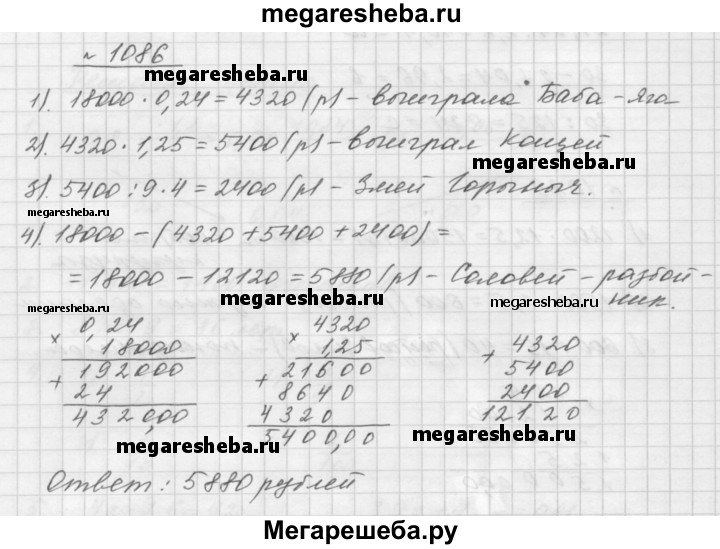 megaresheba.ru
№ 1086
megaresheba.ru
1). 18000 · 0,24 = 4320 (р) - выиграла Баба - яга
2). 4320 · 1,25 = 5400 (р) - выиграл Кощей
megaresheba.ru
3). 5400 : 9 · 4 = 2400 (р) - Змей Горыныч.
megaresheba.ru
megaresheba.ru
4). 18000 - (4320 + 5400 + 2400) =
= 18000 - 12120 = 5880 (р) - Соловей - разбой-
ник.
megaresheba.ru
megaresheba.ru
× 0,24
18000
+ 192000
24
432,000
× 4320
1,25
+ 21600
8640
4320
5400,00
+ 4320
5400
2400
12120
megaresheba.ru
megaresheba.ru
Ответ: 5880 рублей
Мегарешеба.ру